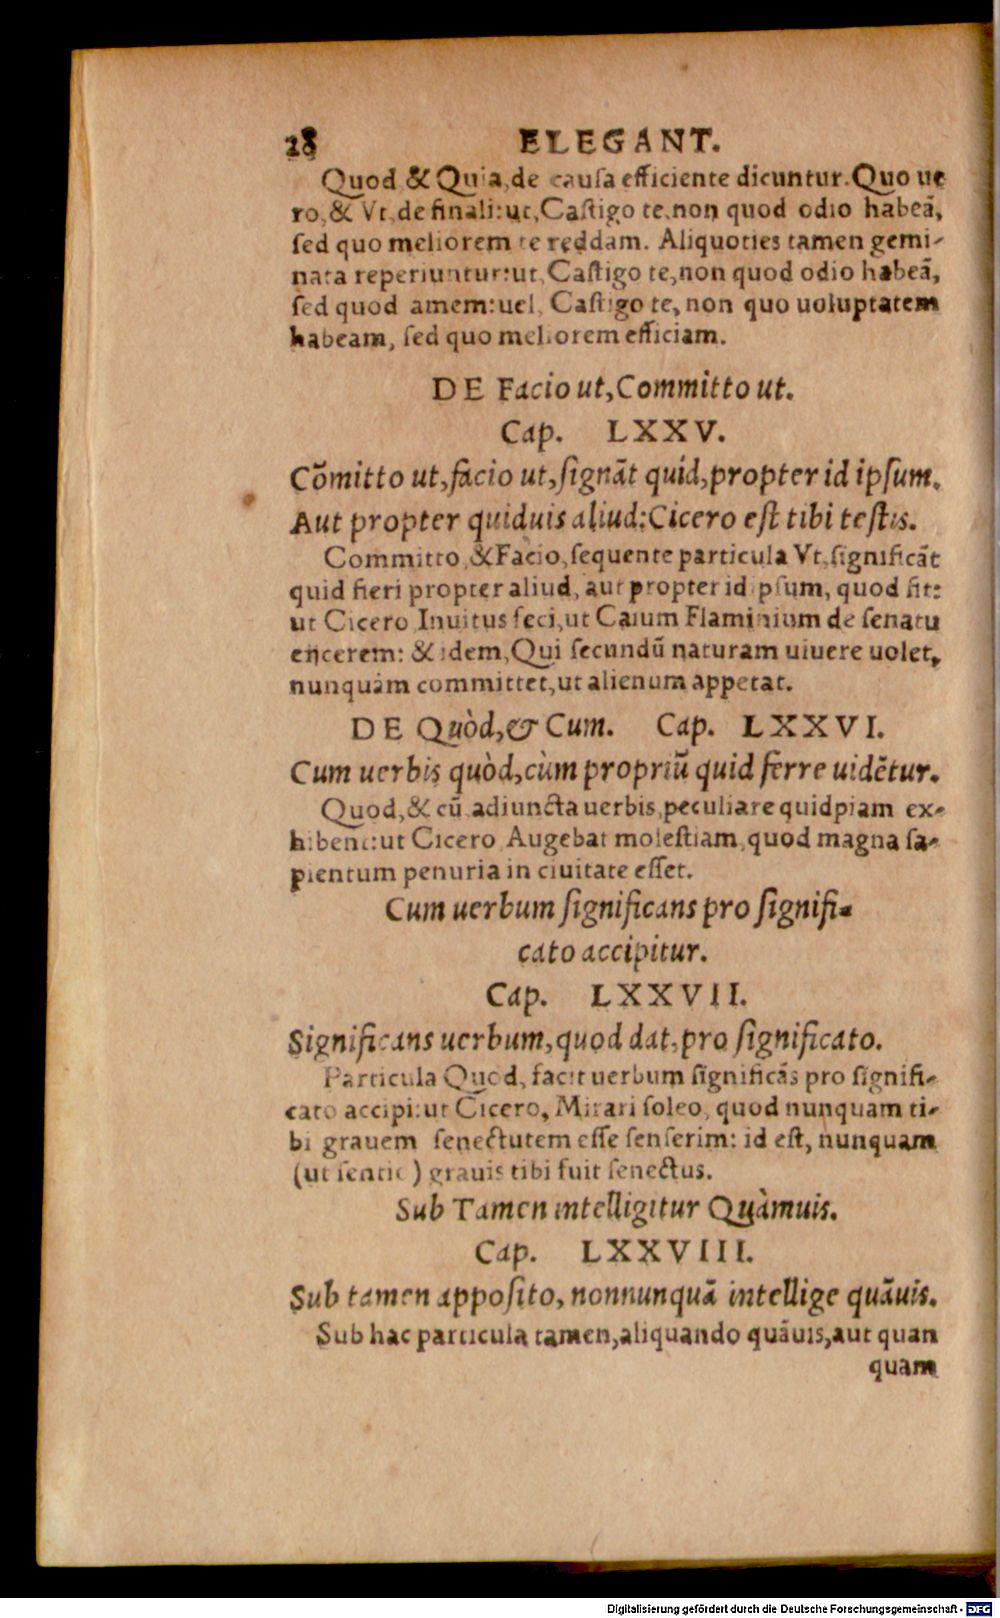 28 ELEGANT.
Quod & Quia, de cauſa efficiente dicuntur. Quo ue
ro, & Vt, de finali: ut, Caſtigo te, non quod odio habeā,
ſed quo meliorem te reddam. Aliquoties tamen gemi-
nata reperiuntur: ut, Caſtigo te, non quod odio habeā,
ſed quod amem: uel, Caſtigo te, non quo uoluptatem
habeam, ſed quo meliorem efficiam.
DE Facio ut, Committo ut.
Cap. LXXV.
Cōmitto ut, facio ut, ſignāt quid, propter id ipſum.
Aut propter quiduis aliud: Cicero eſt tibi teſtis.
Committo, & Facio, ſequente particula Vt, ſignificāt
quid fieri propter aliud, aut propter id ipſum, quod fit:
ut Cicero Inuitus feci, ut Caium Flaminium de ſenatu
eiicerem: & idem, Qui ſecundū naturam uiuere uolet,
nunquàm committet, ut alienum appetat.
DE Quòd, & Cum. Cap. LXXVI.
Cum uerbis quòd, cùm propriū quid ferre uidētur.
Quod, & cū adiuncta uerbis, peculiare quidpiam ex-
hibent: ut Cicero Augebat moleſtiam, quod magna ſa-
pientum penuria in ciuitate eſſet.
Cum uerbum ſignificans pro ſignifi-
cato accipitur.
Cap. LXXVII.
Significans uerbum, quod dat, pro ſignificato.
Particula Quod, facit uerbum ſignificās pro ſignifi-
cato accipi: ut Cicero, Mirari ſoleo, quod nunquam ti-
bi grauem ſenectutem eſſe ſenſerim: id eſt, nunquam
(ut ſentio) grauis tibi fuit ſenectus.
Sub Tamen intelligitur Quàmuis.
Cap. LXXVIII.
Sub tamen appoſito, nonnunquā intellige quāuis.
Sub hac particula tamen, aliquando quāuis, aut quan
quam
Digitalisierung gefördert durch die Deutsche Forschungsgemeinschaft - DFG